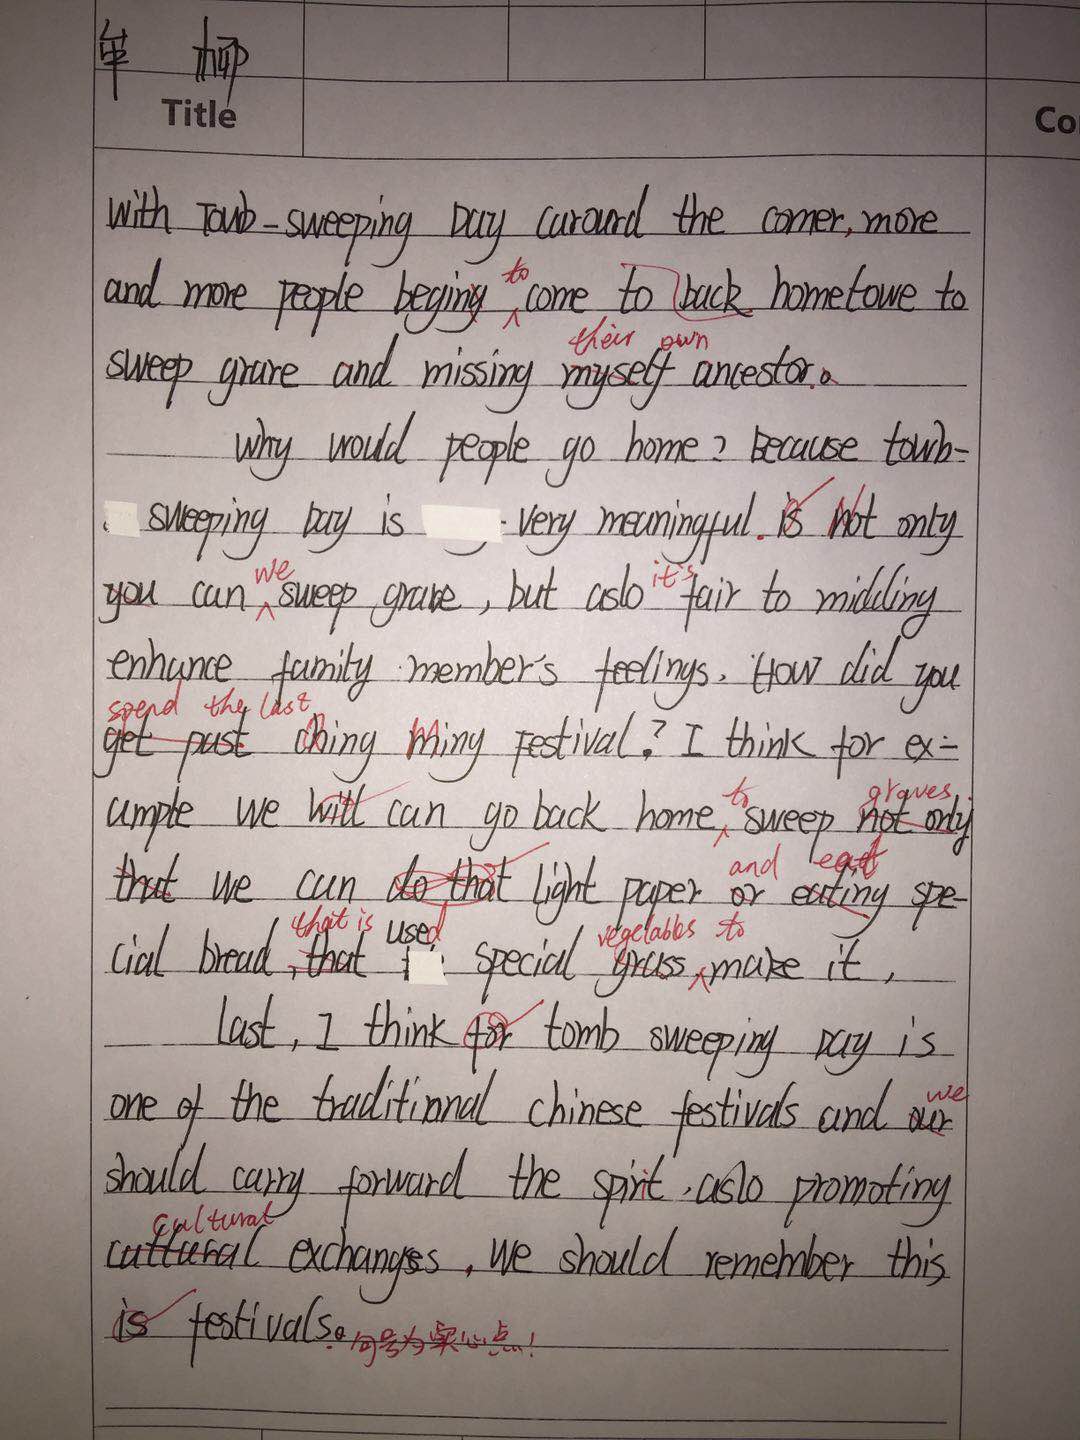 Title
Co
with Toub-sweeping Day curourd the comer, more
to
and more people beging come to back hometowe to
their own
sweep grare and missing myself ancestor.
why would people go home? Because towb-
sweeping Day is very meaningful. is Not only
we it's
you can sweep grave, but aslo fair to midding
enhance family member's feelings. How did you
spend the last
get past ching Ming Festival? I think for ex-
to graves
ample we will can go back home, sweep not only
and eat
that we can do that light paper or eating spe-
that is used vegetables to
cial bread, that special grass make it,
Last, I think for tomb sweeping Day is
we
one of the traditinnal chinese festivals and our
should carry forward the spirit. aslo promoting
cultural
culturual exchanges, We should remember this
is festivals。句号为实心点!